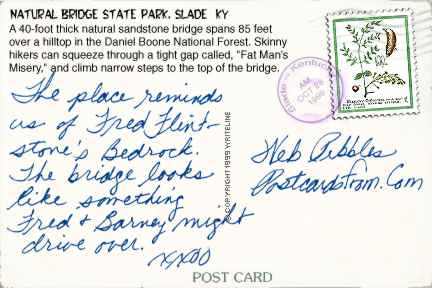 NATURAL BRIDGE STATE PARK. SLADE KY
A 40-foot thick natural sandstone bridge spans 85 feet
over a hilltop in the Daniel Boone National Forest. Skinny
hikers can squeeze through a tight gap called, "Fat Man's
Misery," and climb narrow steps to the top of the bridge.
The place reminds
us of Fred Flint-
stone's Bedrock.
The bridge looks
like something
Fred & Barney might
drive over.
XXOO
© COPYRIGHT 1999 WRITELINE
Slade Kentucky
AM
OCT
Web Pebbles
PostcardsFrom.Com
POST CARD